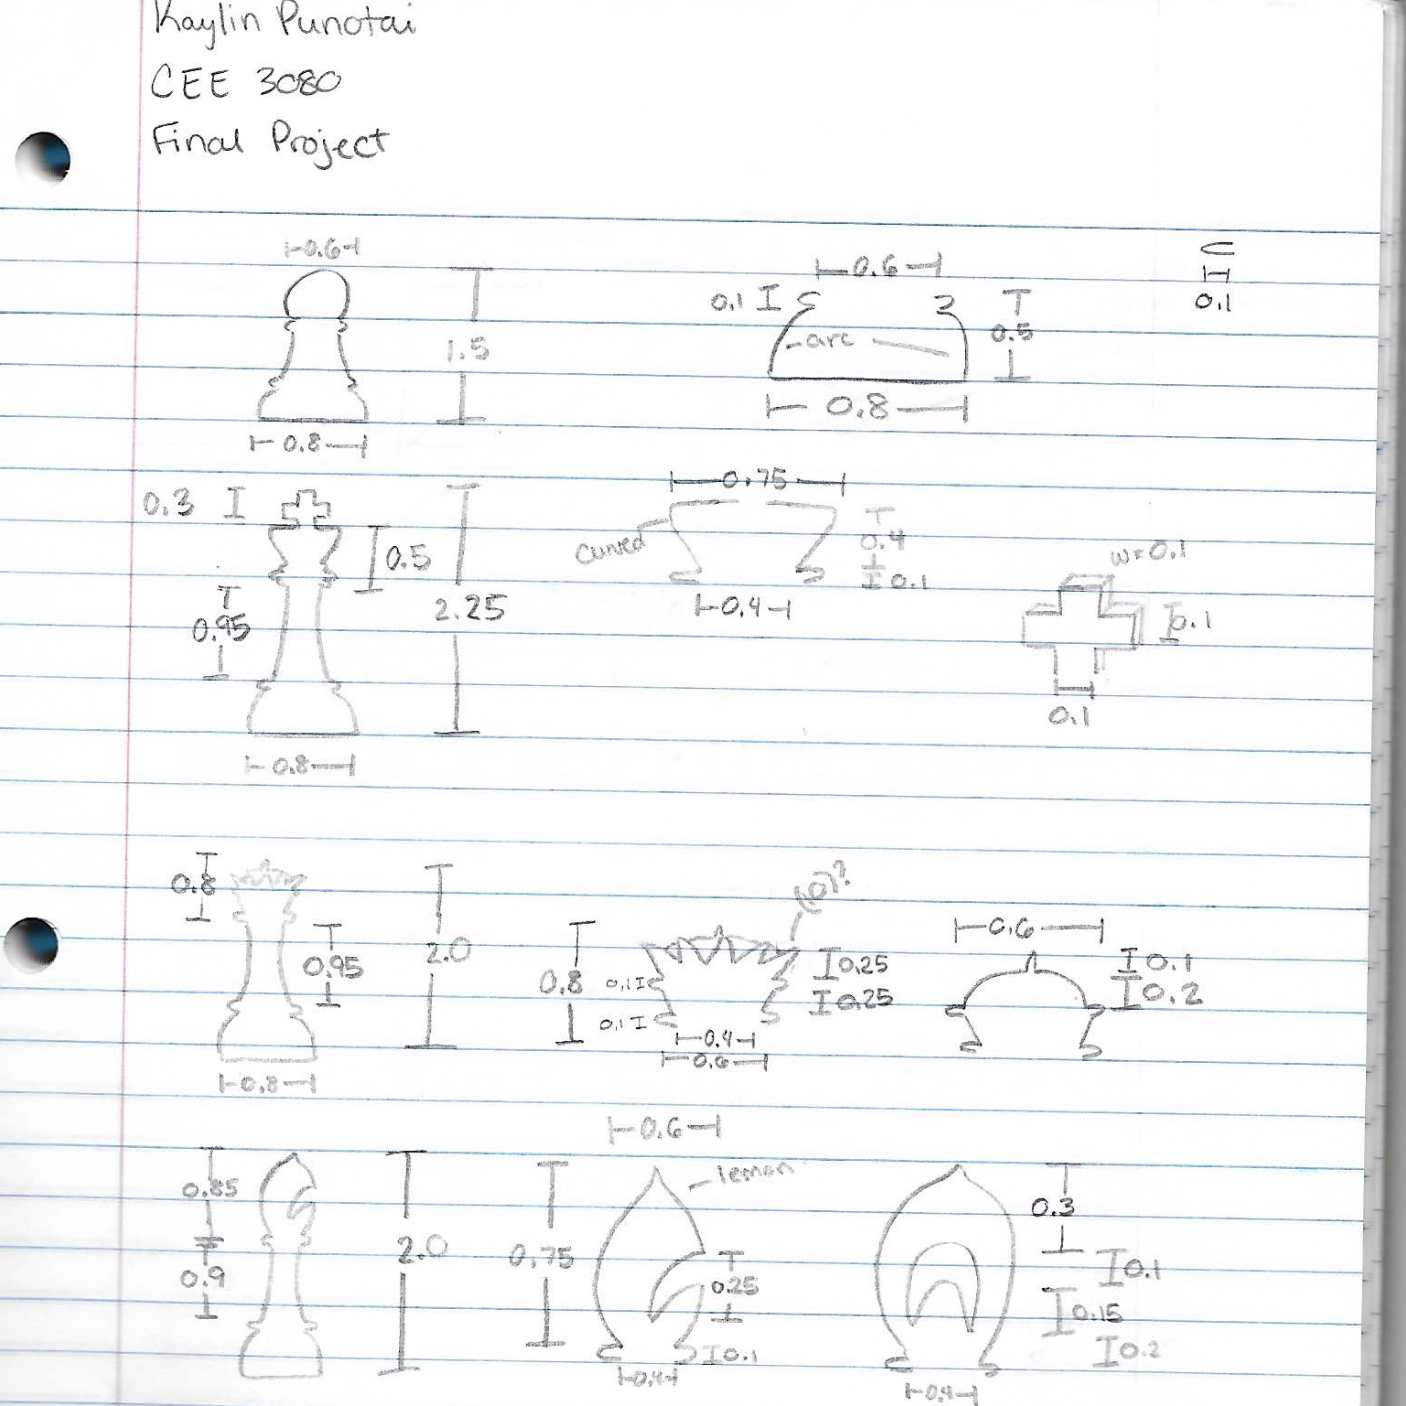 Kaylin Punotai
CEE 3080
Final Project
0.6
1.5
0.8
0.1
0.6
arc
0.5
0.8
0.1
0.3
0.5
0.95
2.25
0.8
0.75
curved
0.4
0.1
0.4
w=0.1
0.1
0.1
0.8
0.95
2.0
0.8
0.8
0.1
0.1
(6)?
0.25
0.25
0.4
0.6
0.6
0.1
0.2
0.85
0.9
2.0
0.6
lemon
0.75
0.25
0.1
0.4
0.3
0.1
0.15
0.2
0.4